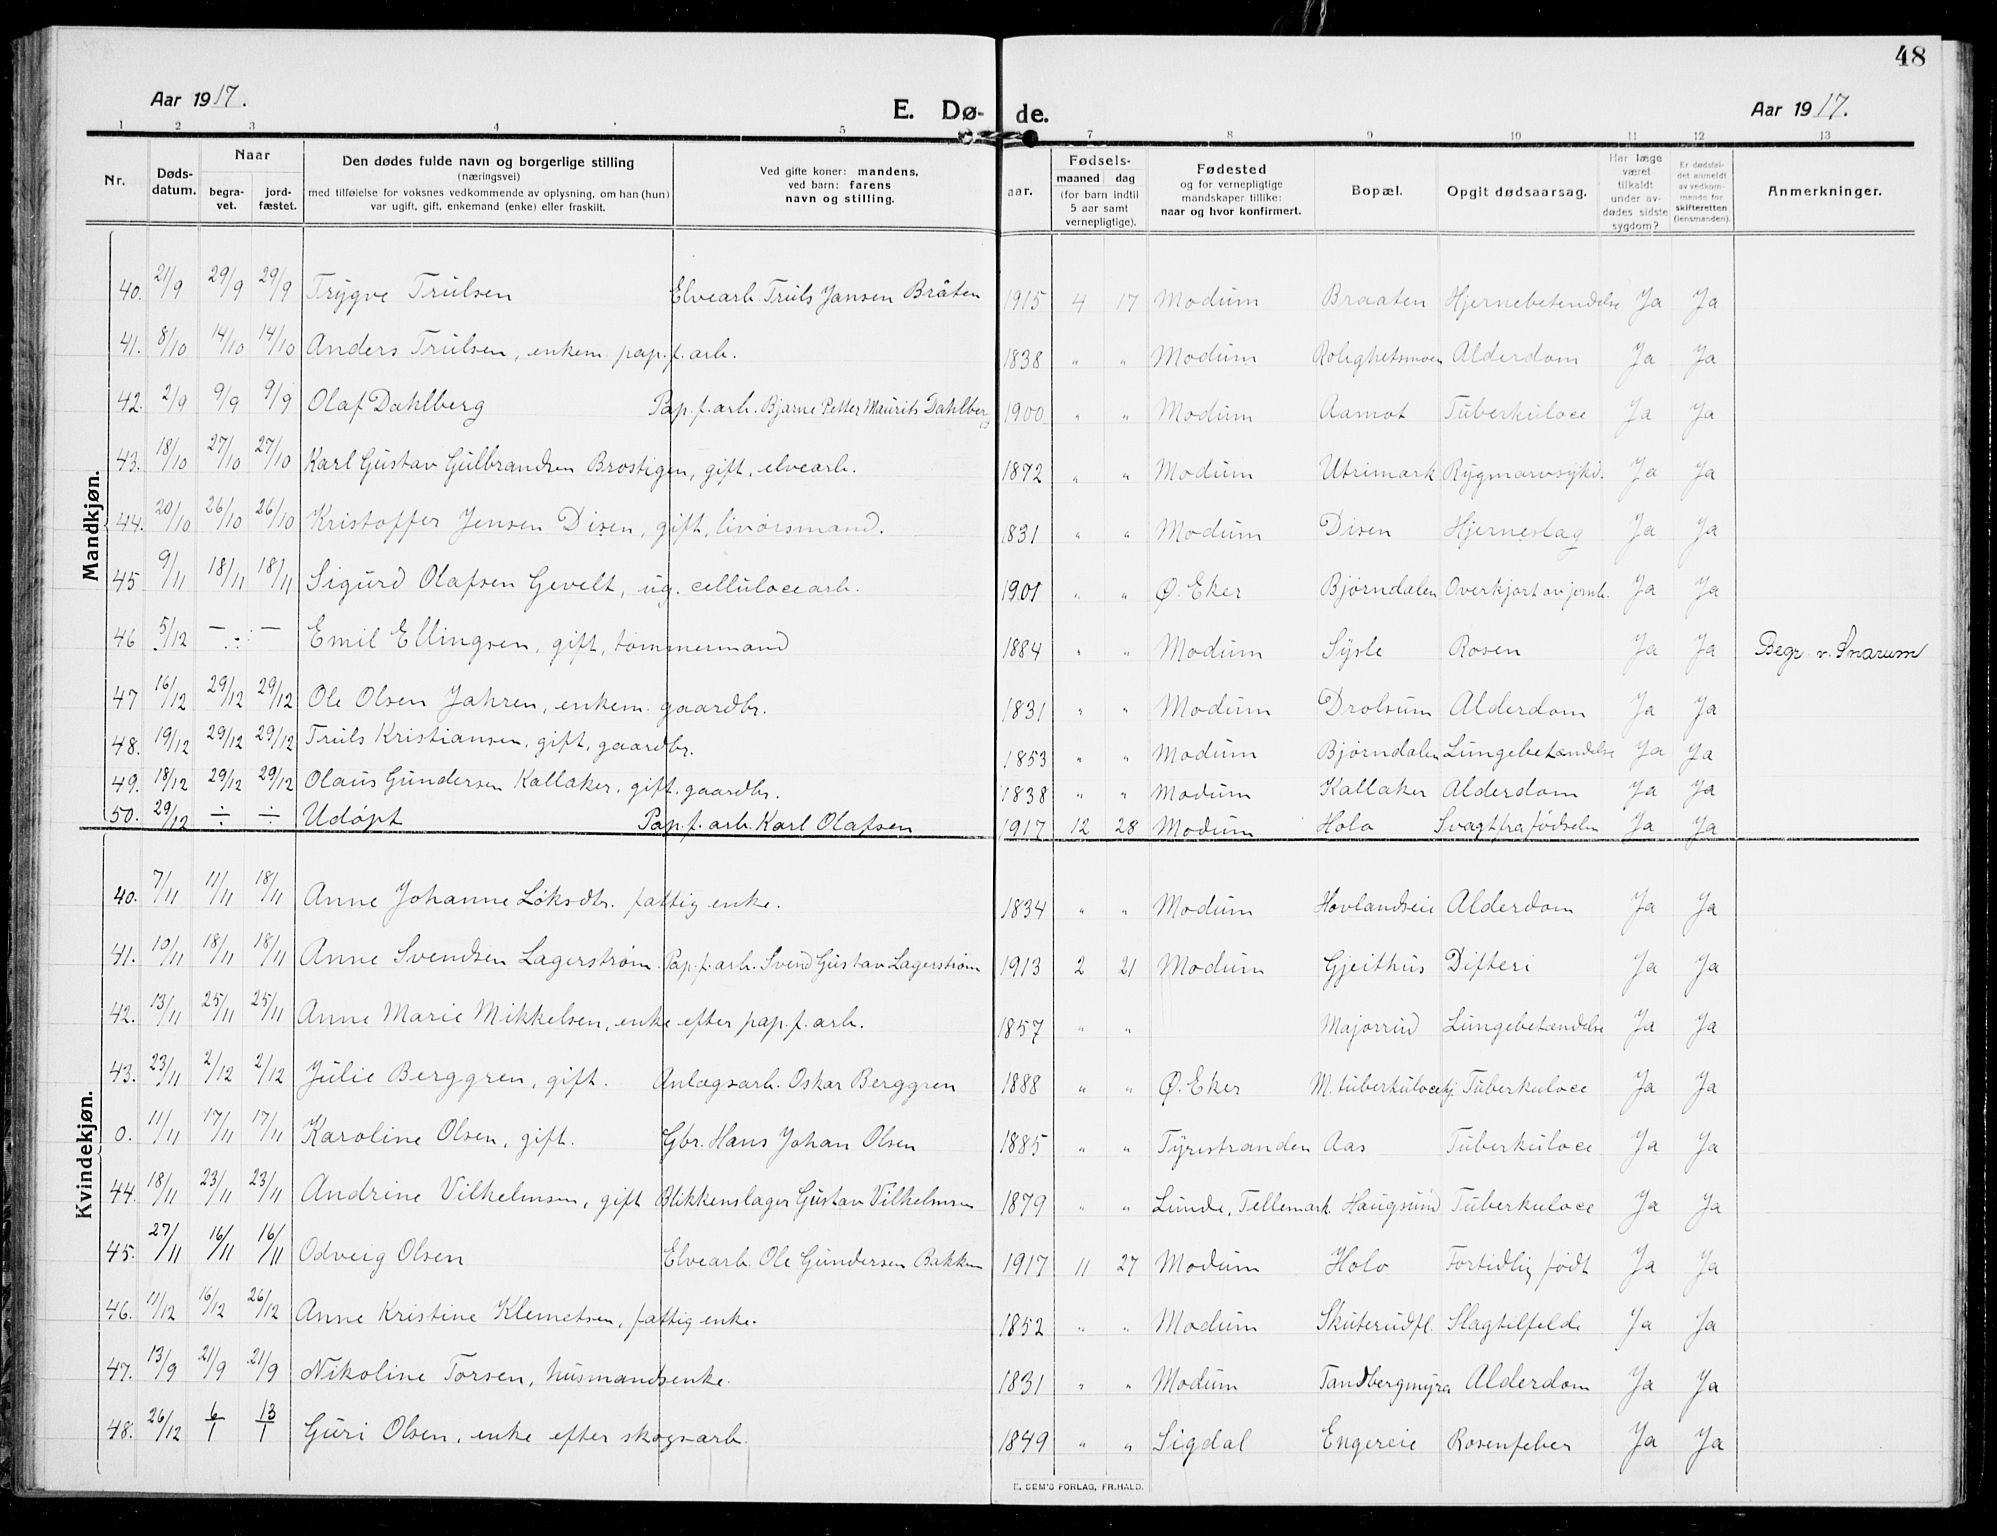 48
Aar 1917. E. Dø- de. Aar 1917.
1 2 3 4 5 7 8 9 10 11 12 13
Nr. Døds-datum. Naar begra-vet. jord-fæstet. Den dødes fulde navn og borgerlige stilling (næringsvei) med tilføielse for voksnes vedkommende av oplysning, om han (hun) var ugift, gift, enkemand (enke) eller fraskilt. Ved gifte koner: mandens, ved barn: farens navn og stilling. aar. Fødsels- maaned dag (for barn indtil 5 aar samt vernepligtige). Fødested og for vernepligtige mandskaper tillike: naar og hvor konfirmert. Bopæl. Opgit dødsaarsag. Har læge været tilkaldt under av-dødes sidste sygdom? Er dødsfal-det anmeldt av vedkom-mende for skifteretten (lensmanden). Anmerkninger.
Mandkjøn.
40. 21/9 29/9 29/9 Trygve Trulsen Elvearb. Truls Jansen Bråten 1915 4 17 Modum Braaten Hjernebetendelse Ja Ja
41. 8/10 14/10 14/10 Anders Trulsen, enkem. pap.f.arb. 1838 " " Modum Rolighetsmoen Alderdom Ja Ja
42. 2/9 9/9 9/9 Olaf Dahlberg Pap.f.arb. Bjarne Petter Maurits Dahlberg 1900 " " Modum Aamot Tuberkuloce Ja Ja
43. 18/10 27/10 27/10 Karl Gustav Gulbrandsen Brostigen, gift, elvearb. 1872 " " Modum Utrimark Rygmarvsykd. Ja Ja
44. 20/10 26/10 26/10 Kristoffer Jensen Disen, gift, livørsmand. 1831 " " Modum Disen Hjerneslag Ja Ja
45 9/11 18/11 18/11 Sigurd Olafsen Gevelt, ug. cellulocearb. 1901 " " Ø. Eker Bjørndalen Overkjørt av jernb. Ja Ja
46 5/12 — .:. — Emil Ellingsen, gift, tømmermand 1884 " " Modum Sysle Rosen Ja Ja Begr. v. Snarum
47 16/12 29/12 29/12 Ole Olsen Jahren, enkem. gaardbr. 1831 " " Modum Drolsum Alderdom Ja Ja
48. 19/12 29/12 29/12 Truls Kristiansen, gift, gaardbr. 1853 " " Modum Bjørndalen Lungebetændelse Ja Ja
49. 18/12 29/12 29/12 Olaus Gundersen Kallaker, gift. gaardbr. 1838 " " Modum Kallaker Alderdom Ja Ja
50. 29/12 ÷ ÷ Udøpt Pap.f.arb. Karl Olafsen 1917 12 28 Modum Holo Svagt fra fødselen Ja Ja
Kvindekjøn.
40. 7/11 11/11 18/11 Anne Johanne Løksdtr. fattig enke. 1834 " " Modum Hovlandseie Alderdom Ja Ja
41. 10/11 18/11 18/11 Anne Svendsen Lagerstrøm Pap.f.arb. Svend Gustav Lagerstrøm 1913 2 21 Modum Gjeithus Difteri Ja Ja
42. 13/11 25/11 25/11 Anne Marie Mikkelsen, enke efter pap.f.arb. 1857 " " Majorrud Lungebetændelse Ja Ja
43. 23/11 2/12 2/12 Julie Berggren, gift. Anlægsarb. Oskar Berggren 1888 " " Ø. Eker M. tuberkulocehj. Tuberkuloce Ja Ja
0. 11/11 17/11 17/11 Karoline Olsen, gift. Gbr. Hans Johan Olsen 1885 " " Tyristranden Aas Tuberkuloce Ja Ja
44. 18/11 23/11 23/11 Andrine Vilhelmsen, gift Blikkenslager Gustav Vilhelmsen 1879 " " Lunde, Tellemark. Haugsund Tuberkuloce Ja Ja
45. 27/11 16/11 16/11 Odveig Olsen Elvearb. Ole Gundersen Bakken 1917 11 27 Modum Holo Fortidlig født Ja Ja
46. 11/12 16/12 26/12 Anne Kristine Klemetsen, fattig enke. 1852 " " Modum Skuterudfl. Slagtilfelde Ja Ja
47. 13/9 21/9 21/9 Nikoline Torsen, husmandsenke. 1831 " " Modum Tandbergmyra Alderdom Ja Ja
48. 26/12 6/1 13/1 Guri Olsen, enke efter skogsarb. 1849 " " Sigdal Engereie Rosenfeber Ja Ja
E. SEM'S FORLAG, FR.HALD.